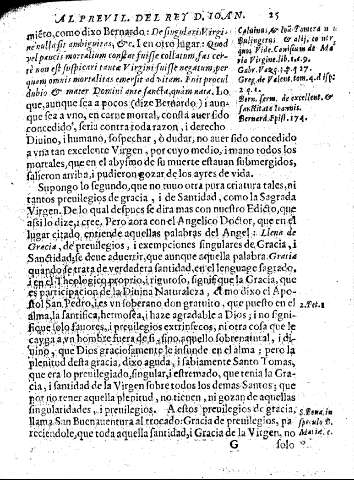 AL PREVIL. DEL REY D. IOAN. 25
mieto, como dixo Bernardo: De singulari Virgi-
ne nulla sit ambiguitas, &c. I en otro lugar: Quod
vel paucis mortalium constat fuisse collatum, fas cer-
tè non est suspicari tantæ Virgini fuisse negatum, per
quem omnis mortalitas emersit ad vitam. Fuit procul
dubio & mater Domini ante sancta, quàm nata. Lo
que, aunque sea a pocos (dize Bernardo) i aun-
que sea a vno, en carne mortal, constà auer sido
concedido, seria contra toda razon, i derecho
Diuino, i humano, sospechar, ò dudar, no auer sido concedido
a vna tan excelente Virgen, por cuyo medio, i mano todos los
mortales, que en el abysmo de su muerte estauan submergidos,
salieron arriba, i pudieron gozar de los ayres de vida.
Supongo lo segundo, que no tuuo otra pura criatura tales, ni
tantos preuilegios de gracia, i de Santidad, como la Sagrada
Virgen. De lo qual despues se dira mas con nuestro Edicto, que
assi lo dize, i cree. Pero aora con el Angelico Doctor, que en el
lugar citado, entiende aquellas palabras del Angel: Llena de
Gracia, de preuilegios, i exempciones singulares de Gracia, i
Sanctidad, se deue aduertir, que aunque aquella palabra Gratia
quando se trata de verdadera santidad, en el lenguage sagrado,
i en el Theologico proprio, i riguroso, signifique la Gracia, que
es participacion de la Diuina Naturaleza, (como dixo el Apo-
stol San Pedro, i es vn soberano don gratuito, que puesto en el
alma, la santifica, hermosea, i haze agradable a Dios; i no signi-
fique solo fauores, i preuilegios extrinsecos, ni otra cosa que le
cayga a vn hombre fuera de si, sino, aquello sobrenatural, i di-
uino, que Dios graciosamente le infunde en el alma; pero la
plenitud desta gracia, dixo aguda, i sabiamente Santo Tomas,
que era lo preuilegiado, singular, i estremado, que tenia la Gra-
cia, i santidad de la Virgen sobre todos los demas Santos; que
por no tener aquella plenitud, no tienen, ni gozan de aquellas
singularidades, i preuilegios. A estos preuilegios de gracia,
llama San Buenauentura al trocado: Gracia de preuilegios, pa
reciendole, que toda aquella santidad, i Gracia de la Virgen, no
G solo
Caluinus, &
Bullingerus & alij, contra
quos Vide Canisium de Ma
ria Virgine lib. 1. c. 9.
Greg. de Valent. tom. 4. disp.
2 q. 1.
Bern. serm. de excellent. &
sanctitate Ioannis.
Bernard. Epist. 174.
2. Pet. 1
S. Bona. in
speculo B.
Mariæ. c.